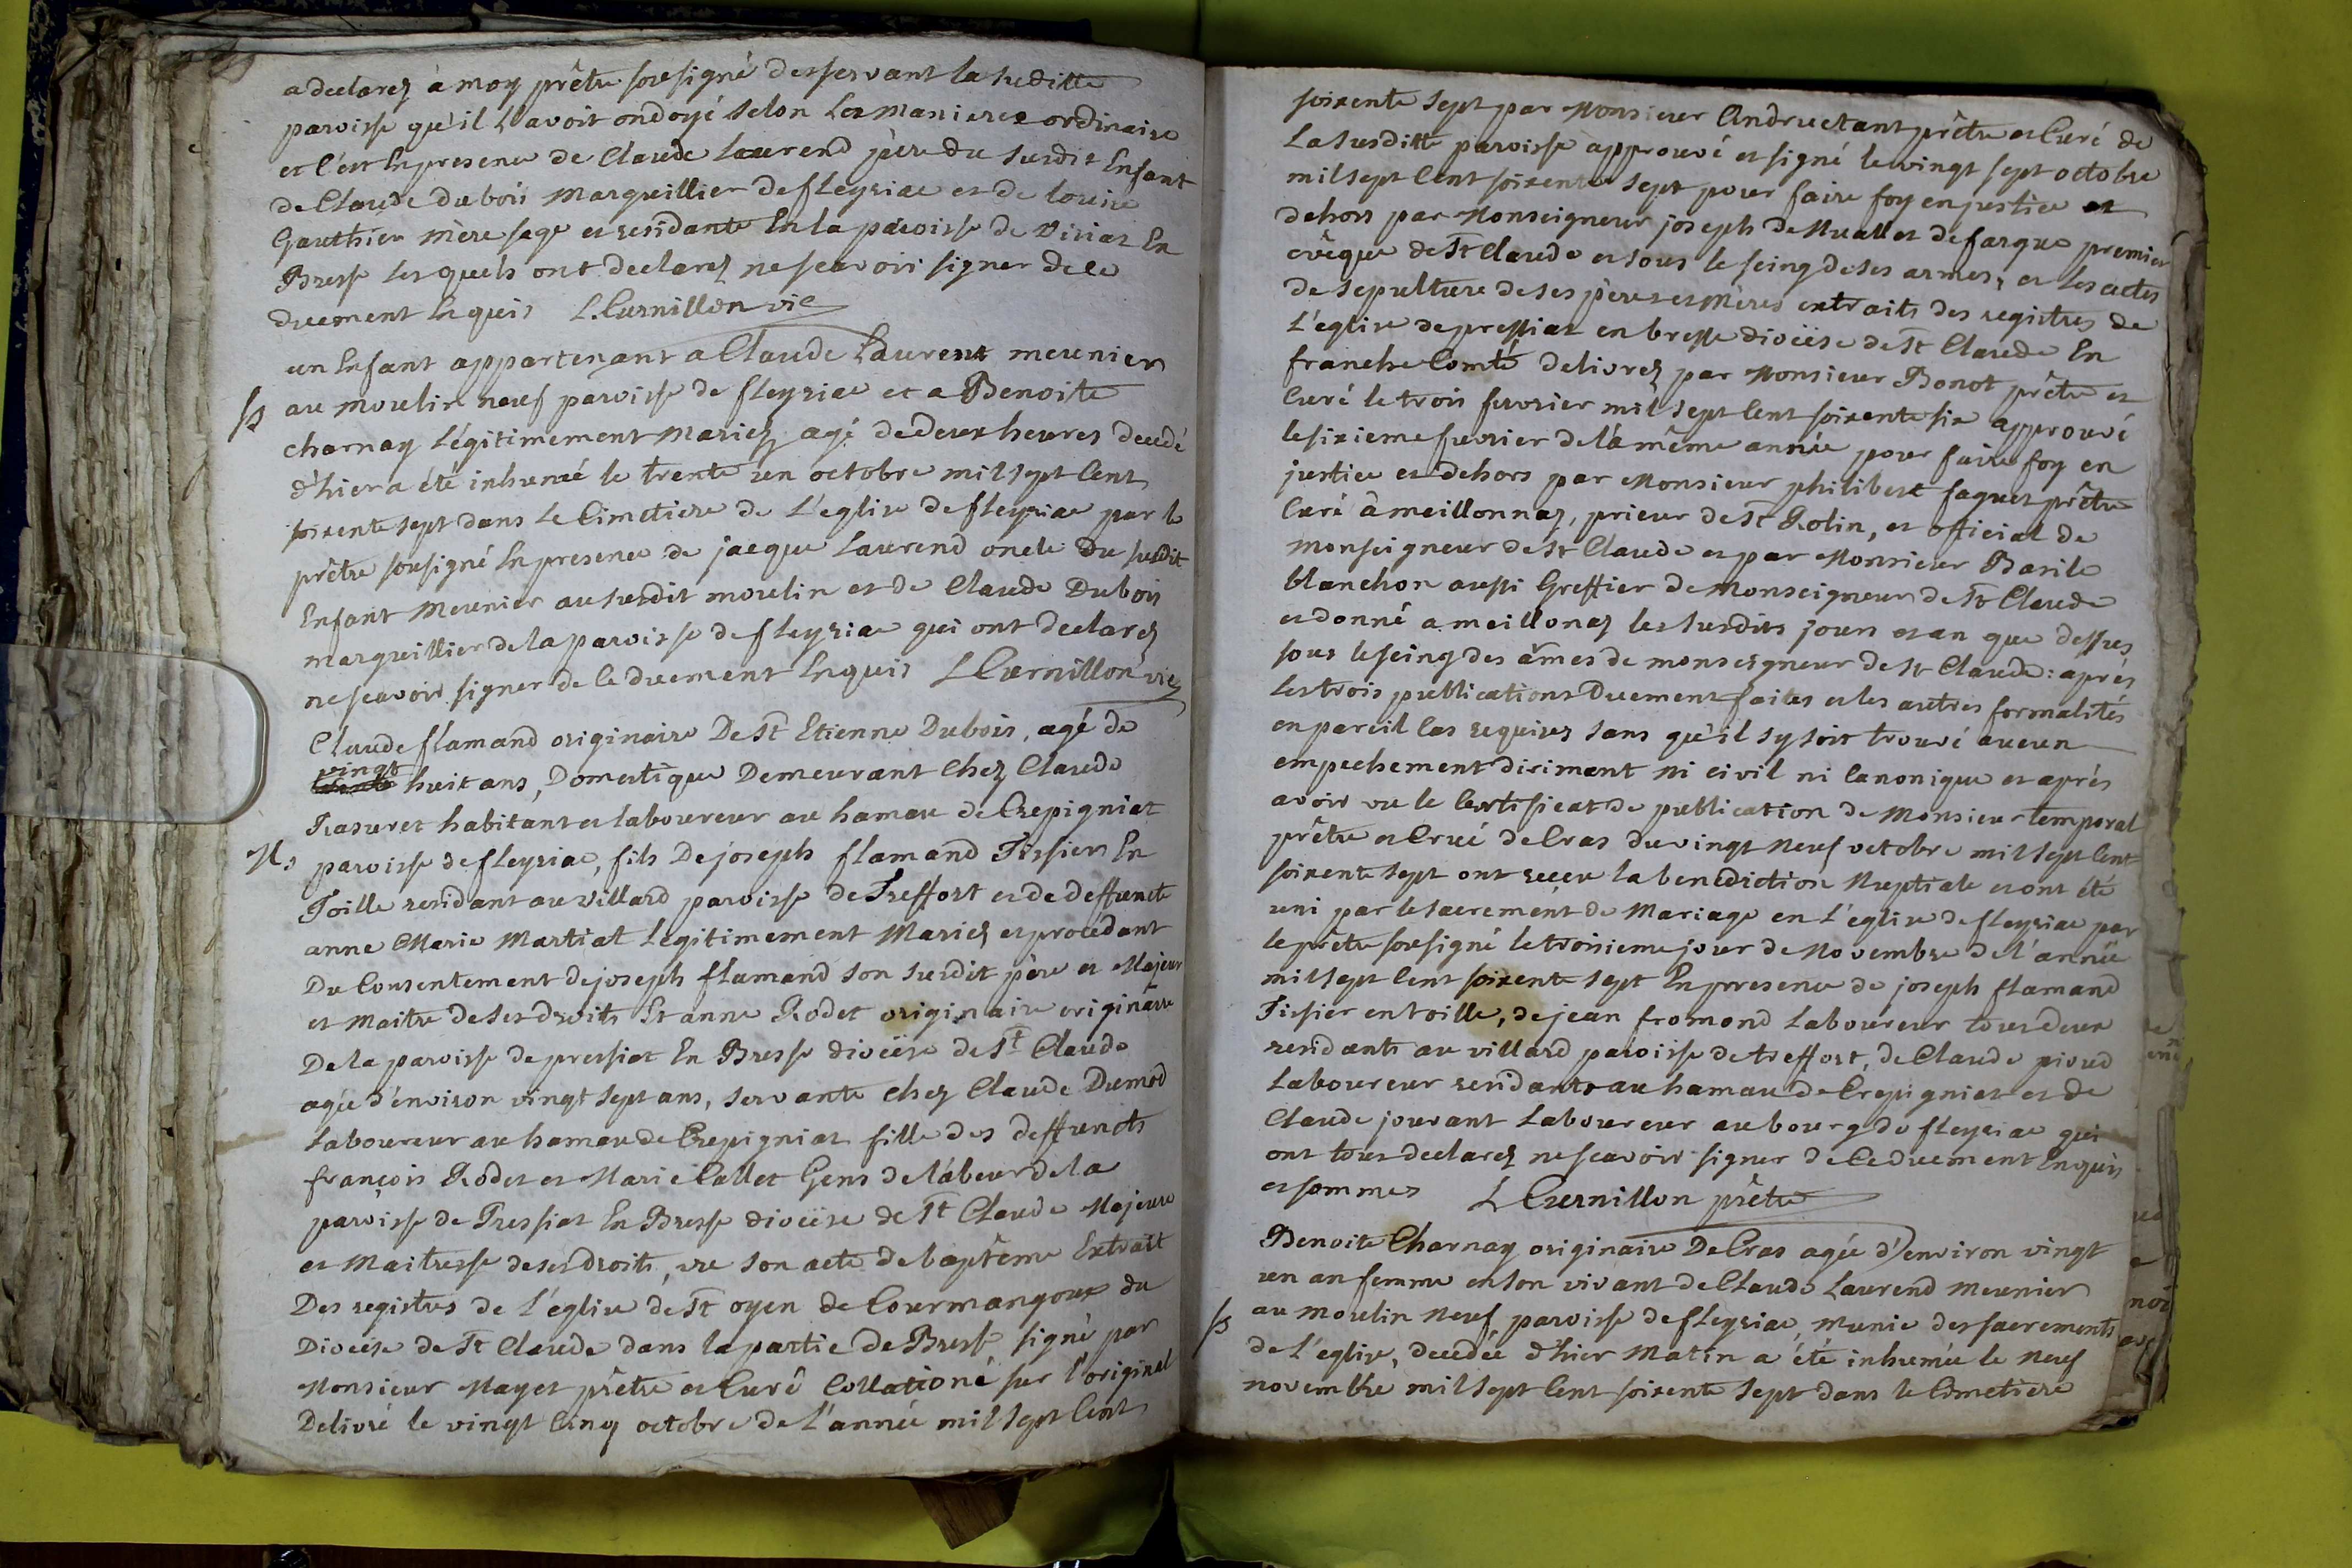 a declarez à moy prêtre sousigné desservant la suditte
paroisse qu'il l'avoit ondoyé selon les manieres ordinaire
et c'est En presence de Claude Laurend père du susdit Enfant
de Claude dubois Marguillier de fleyriac et de louise
Gauthier mère sage et residante En la paroisse de Viriat En
Bresse lesquels ont declarez ne scavoir signer de ce
duement Enquis L. Curnillon vic
un Enfant appartenant a Claude Laurent meunier
S au moulin neuf paroisse de fleyriac et a Benoite
charnay légitimement Mariez agé de deux heures decedé
d'hier a été inhumé le trente un octobre mil sept Cent
soixente sept dans le Cimetiere de L'eglise de fleyriac par le
prêtre sousigné En presence de jacque Laurend oncle du susdit
Enfant Meunier au susdit moulin et de Claude Dubois
marguillier de la paroisse de fleyriac qui ont declarez
ne scavoir signer de Ce duement Enquis L Curnillon vic
Claude flamand originaire De St Etienne Dubois, agé de
vingt
huit ans, Domestique Demeurant Chez Claude
Rasuret habitant et laboureur au hamau de Crepigniat
M. paroisse de fleyriac, fils De joseph flamand Tissier En
Toille residant au Villard paroisse de Treffort et de deffuncte
anne Marie Martiat Legitimement Mariez et procedant
Du Consentement de joseph flamand son susdit père et Majeur
et Maitre de ses droits Et anne Rodet originaire originaire
De la paroisse de pressiat En Bresse dioceise de St Claude
agée d'environ vingt sept ans, servante chez Claude Dumod
Laboureur au hamau de Crepigniat fille des deffuncts
françois Rodet et Marie Callet Gens de labeur de la
paroisse de Pressiat En Bresse dioceise de St Claude Majeure
et Maitresse de ses droits, vu son acte de baptême Extrait
Des registres de L'eglise de St oyen de Courmangoux du
Dioceise de St Claude dans la partie de Bresse signé par
Monsieur Mayet prêtre et Curé Collationé sur l'original
Delivré le vingt Cinq octobre de L'année mil sept Cent
soixente sept par Monsieur Andructant prêtre et Curé de
La susditte paroisse approuvé et signé le vingt sept octobre
mil sept Cent soixente sept pour faire foy en justice et
dehors par Monseigneur joseph de Meallet de fargue premier
evêque de St Claude et sous le seing de ses armes, et les actes
de sepulture de ses pères et Mères extraits des registres de
L'eglise de pressiat en bresse dioceise de St Claude En
franche Comté delivrez par Monsieur Bonot prêtre et
Curé le trois fevrier mil sept Cent soixente six approuvé
le sixieme fevrier de la même année pour faire foy en
justice et dehors par Monsieur philibert faguet prêtre
Curé à meillonnaz, prieur de St Rolin, et official de
Monseigneur de St Claude et par Monsieur Basile
blanchon aussi Greffier de Monseigneur de St Claude
et donné a meillonaz les susdits jours et an que dessus
sous le seing des armes de monseigneur de St Claude: aprés
les trois publications Duement faites et les autres formalités
en pareil Cas requises sans qu'il sy soit trouvé aucun
empechement dirimant ni civil ni Canonique et aprés
avoir vu le Certificat de publication de Monsieur temporal
prêtre et Curé de Cras du vingt Neuf octobre mil sept Cent
soixente sept ont receu la benediction Nuptiale et ont été
uni par le sacrement de Mariage en L'eglise de fleyriac par
le prêtre sousigné le troisieme jour de Novembre de l'année
mil sept Cent soixente sept En presence de joseph flamand
Tissier en toille, de jean fromond Laboureur tous deux
residants au villard paroisse de treffort, de Claude pioud
Laboureur residant au hamau de Crepigniat et de
Claude jouvant Laboureur au bourg de fleyriac qui
ont tous declarez ne scavoir signer de Ce duement Enquis
et sommes L Curnillon prêtre
Benoite Charnay originaire De Cras agée d'environ vingt
un an femme en son vivant de Claude Laurend Meunier
S au Moulin Neuf paroisse de fleyriac, munie des sacrements
de L'eglise, decedée d'hier Matin a été inhumée le Neuf
novembre mil sept Cent soixente sept dans le Cimetiere